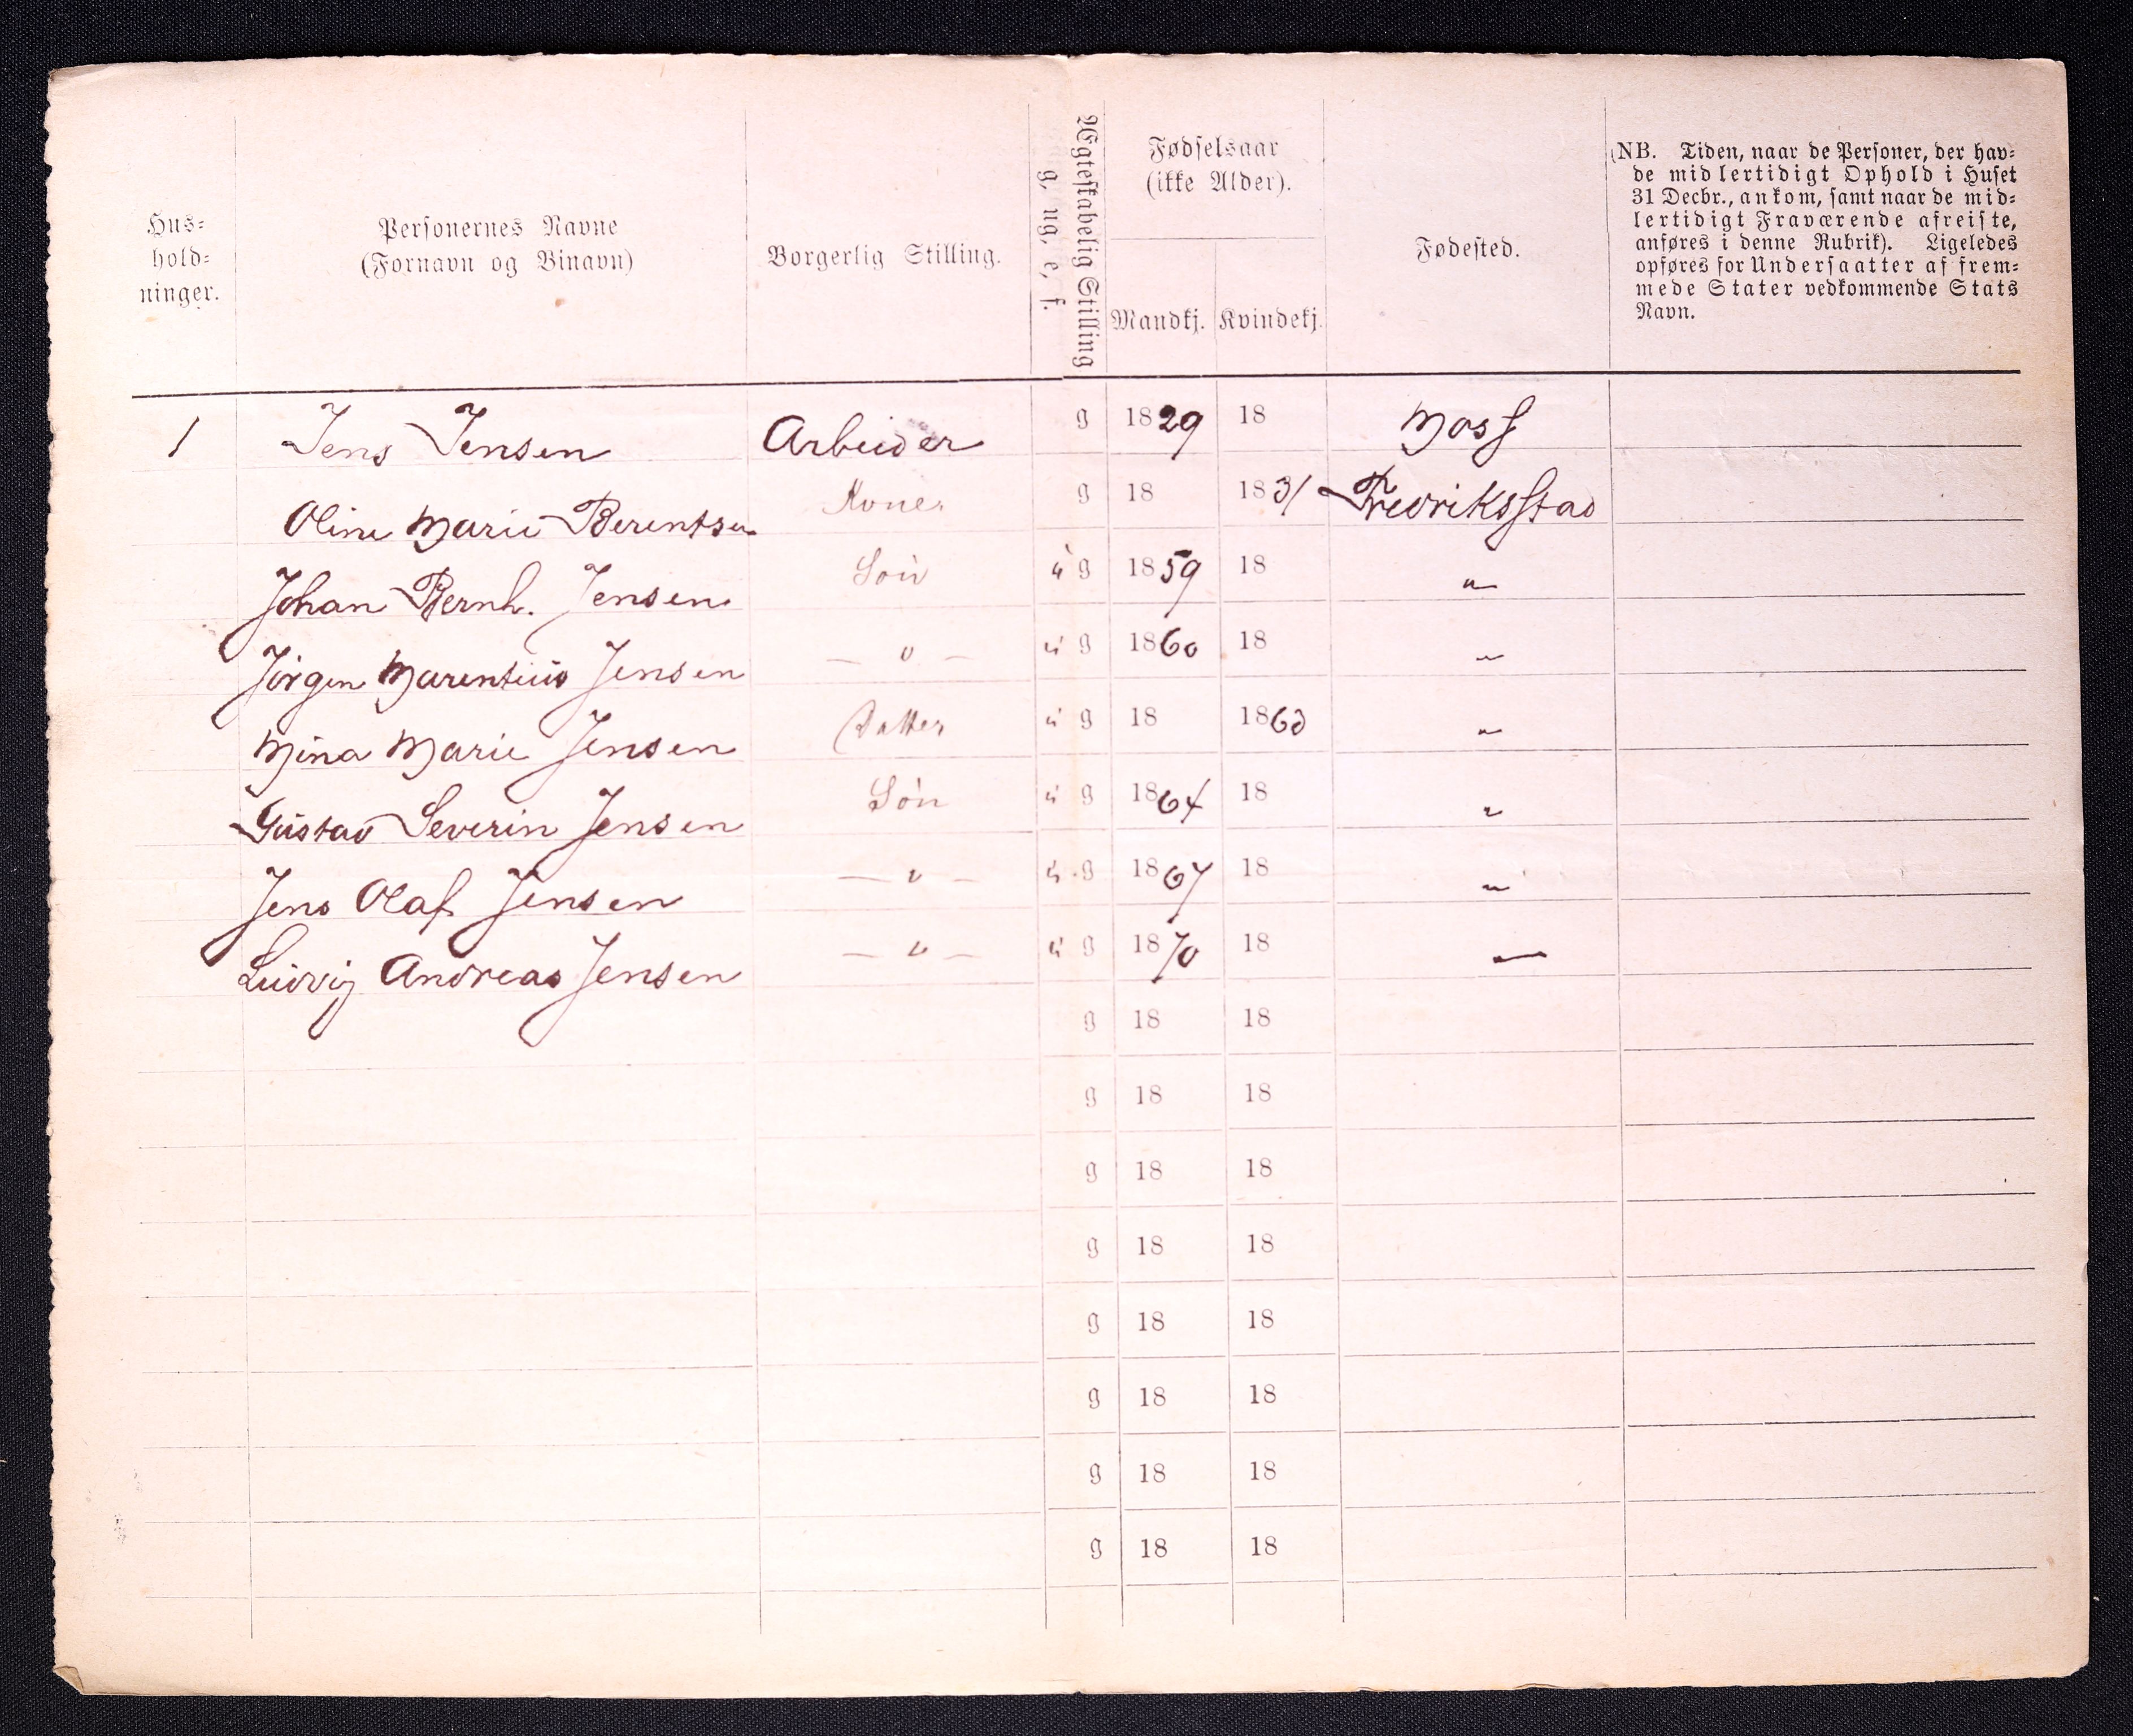 Hus-
hold-
ninger.
Personernes Navne
(Fornavn og Binavn)
Borgerlig Stilling.
Ægteskabelig Stilling
g, ug, e, f.
Fødselsaar
(ikke Alder).
Mandkj. Kvindekj.
Fødested.
(NB. Tiden, naar de Personer, der hav-
de midlertidigt Ophold i Huset
31 Decbr., ankom, samt naar de mid-
lertidigt Fraværende afreiste,
anføres i denne Rubrik). Ligeledes
opføres for Undersaatter af frem-
mede Stater vedkommende Stats
Navn.
1 Jens Jensen Arbeider g 1829 18 Moss
Oline Marie Berentsen Kone g 18 1831 Fredriksstad
Johan Bernh. Jensen Søn u g 1859 18 "
Jørgen Marentius Jensen — " — u g 1860 18 "
Mina Marie Jensen Datter u g 18 18 "
Gustav Severin Jensen Søn u g 1864 18 "
Jens Olaf Jensen — " — u g 1867 18 "
Ludvig Andreas Jensen — " — u g 1870 18 —
g 18 18
g 18 18
g 18 18
g 18 18
g 18 18
g 18 18
g 18 18
g 18 18